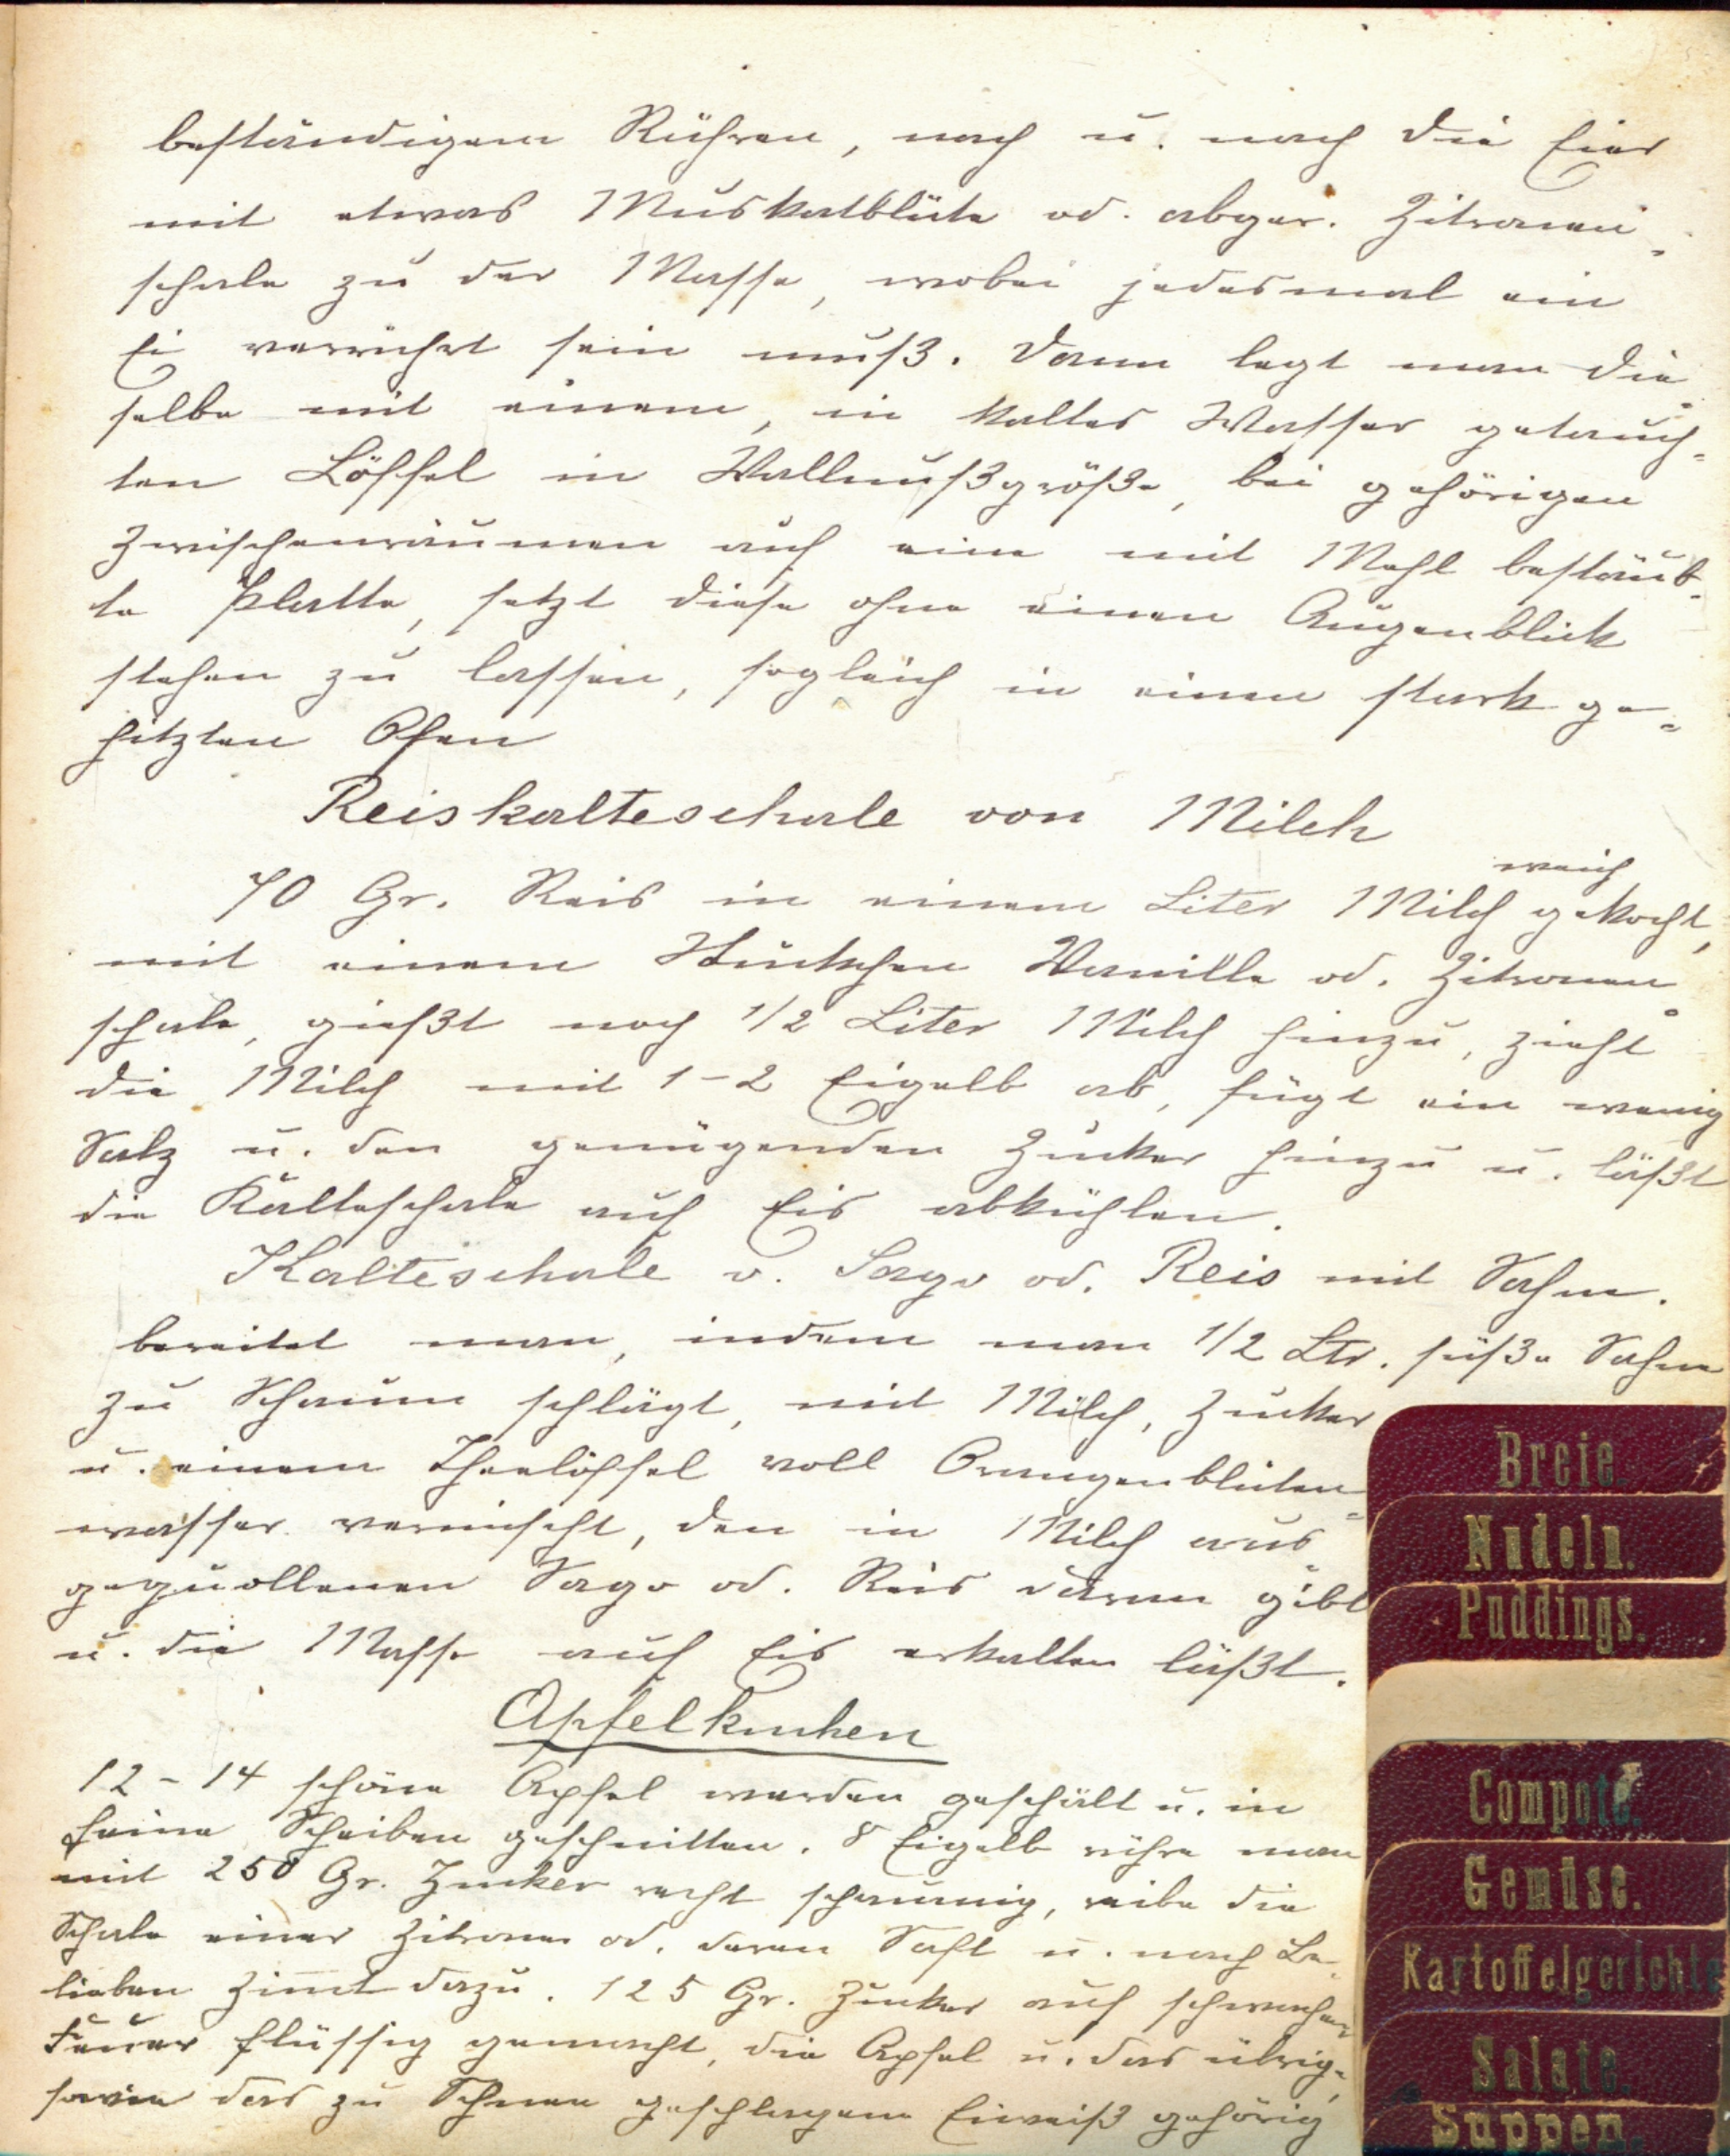 beständigem Rühren, nach u. nach die Eier
mit etwas Muskatblüte od. abger. Zitronen-
schale zu der Masse, wobei jedesmal ein
Ei verrührt sein muß. Dann legt man die-
selbe mit einem, in kaltes Wasser getauch-
ten Löffel in Wallnußgröße, bei gehörigen
Zwischenräumen auf eine mit Mehl bestäub-
te Platte, setzt diese ohne einen Augenblick
stehen zu lassen, sogleich in einen stark ge-
hitzten Ofen
Reiskalteschale von Milch
weich
70 Gr. Reis in einem Liter Milch gekocht,
mit einem Stückchen Vanille od. Zitronen-
schale, gießt noch 1/2 Liter Milch hinzu, zieht
die Milch mit 1-2 Eigelb ab, fügt ein wenig
Salz u. den genügenden Zucker hinzu u. läßt
die Kalteschale auf Eis abkühlen.
Kalteschale v. Sago od. Reis mit Sahne.
bereitet man, indem man 1/2 Ltr. süße Sahne
zu Schaum schlägt, mit Milch, Zucker
u. einem Theelöffel voll Orangenblüten-
wasser vermischt, den in Milch aus-
gequollenen Sago od. Reis daran gibt
u. die Masse auf Eis erkalten läßt.
Apfelkuchen
12-14 schöne Apfel werden geschält u. in
feine Scheiben geschnitten. 8 Eigelb rühre man
mit 250 Gr. Zucker recht schaumig, reibe die
Schale einer Zitrone od. deren Saft u. nach Be-
lieben Zimt dazu. 125 Gr. Zucker auf schwachem
Feuer flüssig gemacht, die Apfel u. das übrige,
sowie das zu Schnee geschlagene Eiweiß gehörig
Breie.
Nudeln.
Puddings.
Compote.
Gemüse.
Kartoffelgerichte
Salate.
Suppen.